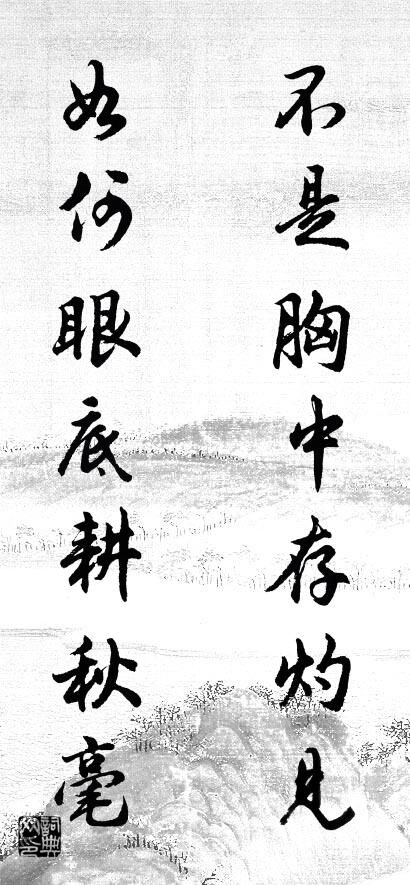 不是胸中存灼见
如何眼底耕秋毫